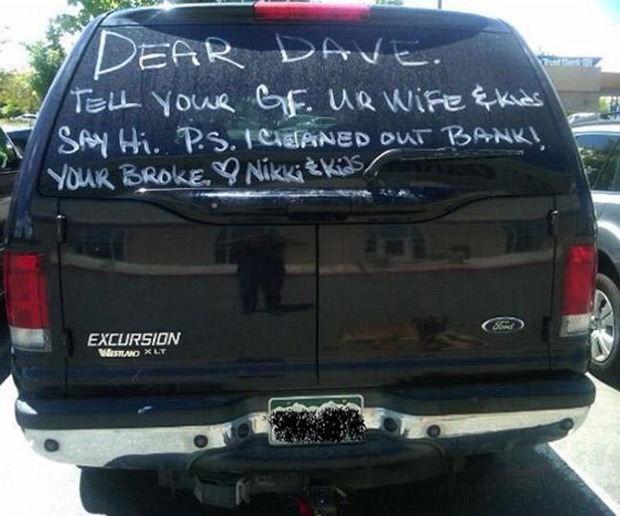 DEAR DAVE.
TELL YOUR GF. UR WiFE & KiDS
SAY Hi. P.S. I CLEANED OUT BANK!
YOUR BROKE. ♡ Nikki & KiDS
EXCURSION
Ford
XLT